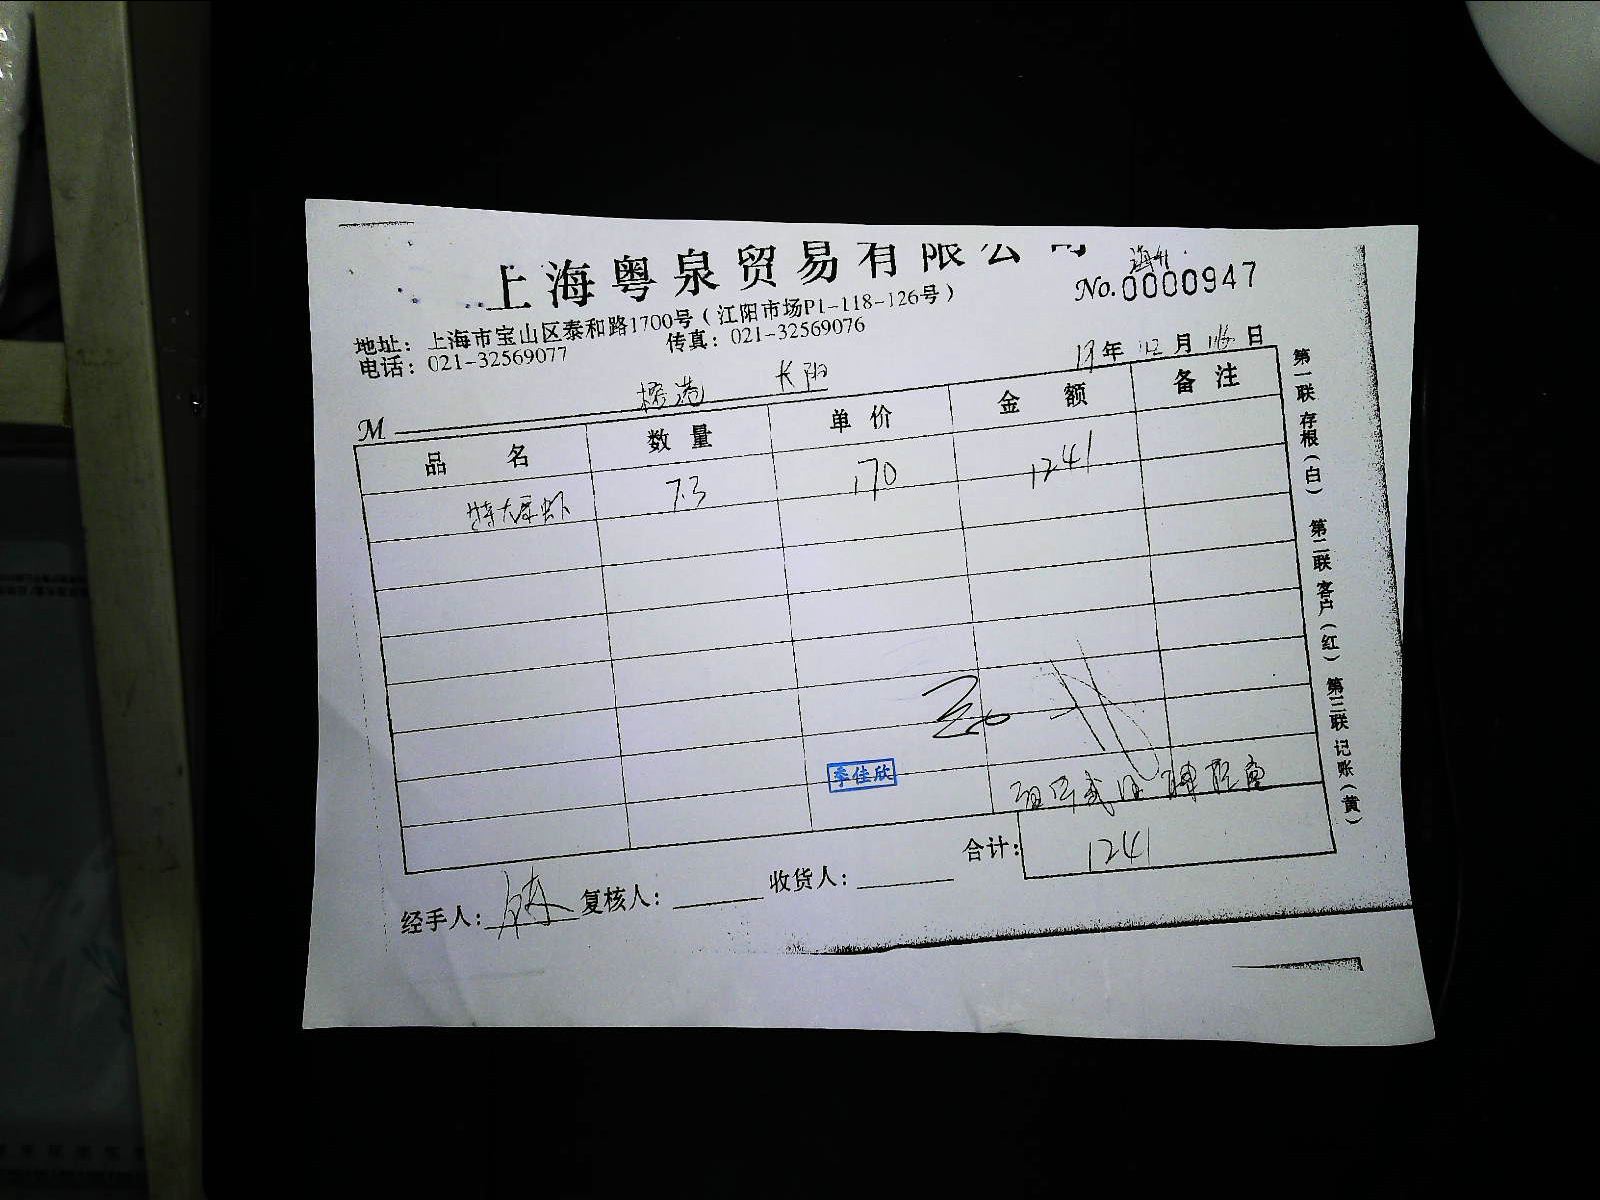 上海粤泉贸易有限公司
No.0000947
地址：上海市宝山区泰和路1700号（江阳市场P1-118-126号）
电话：021-32569077 传真：021-32569076
19年12月 日
M 长阳
品名 数量 单价 金额 备注
特大 虾 7.3 170 1241
李佳欣
合计：1241
经手人： 复核人： 收货人：
第一联 存根（白） 第二联 客户（红） 第三联 记账（黄）